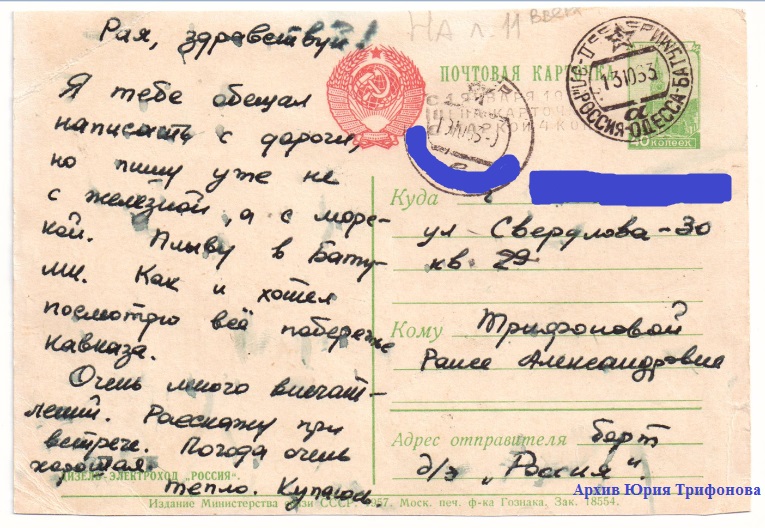 Рая, здравствуй!
Я тебе обещал
написать с дороги,
но пишу уже не
с железной, а с морс-
кой. Плыву в Бату-
ми. Как и хотел
посмотрю всё побережье
Кавказа.
Очень много впечат-
лений. Расскажу при
встрече. Погода очень
хорошая.
тепло. Купаюсь.
ДИЗЕЛЬ-ЭЛЕКТРОХОД „РОССИЯ".
НА л. 11 ввека
ПОЧТОВАЯ КАРТОЧКА
"РОССИЯ-ОДЕССА-БАТУМИ
40 копеек
Куда
ул Свердлова-30
кв. 29
Кому Трифоновой
Раисе Александровне
Адрес отправителя борт
д/э „Россия".
Архив Юрия Трифонова
Издание Министерства связи СССР. 1957. Моск. печ. ф-ка Гознака. Зак. 18554.